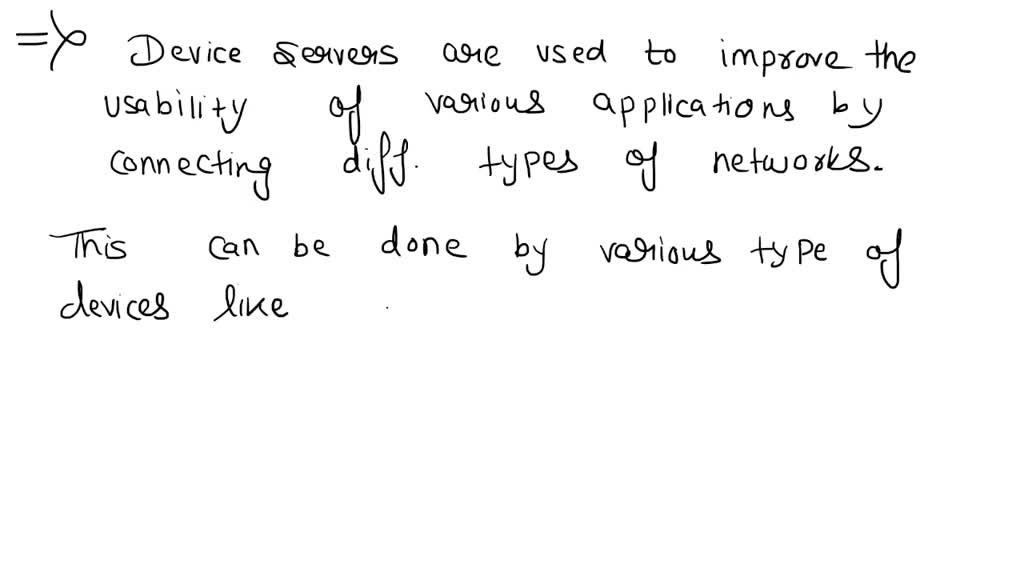 => Device servers are used to improve the
usability of various applications by
connecting diff. types of networks.
This can be done by various type of
devices like